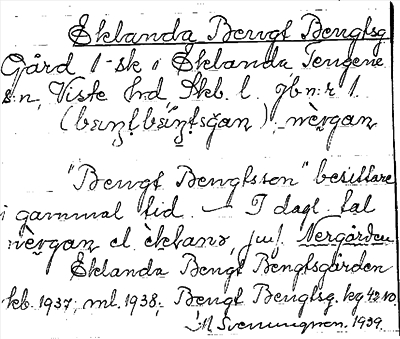 Eklanda Bengt Bengtsg
Gård 1-sk i Eklanda Tengene
s:n, Viste hrd Skb. l. jbn:r 1.
nèrgan
"Bengt Bengtsson" besittare
i gammal tid. — I dagl. tal
nèrgan el. èklanə, jmf. Nergården
Eklanda Bengt Bengtsgården
kb. 1937; ml. 1938; Bengt Bengtsg. kg 42 10.
M Svenungson. 1939.